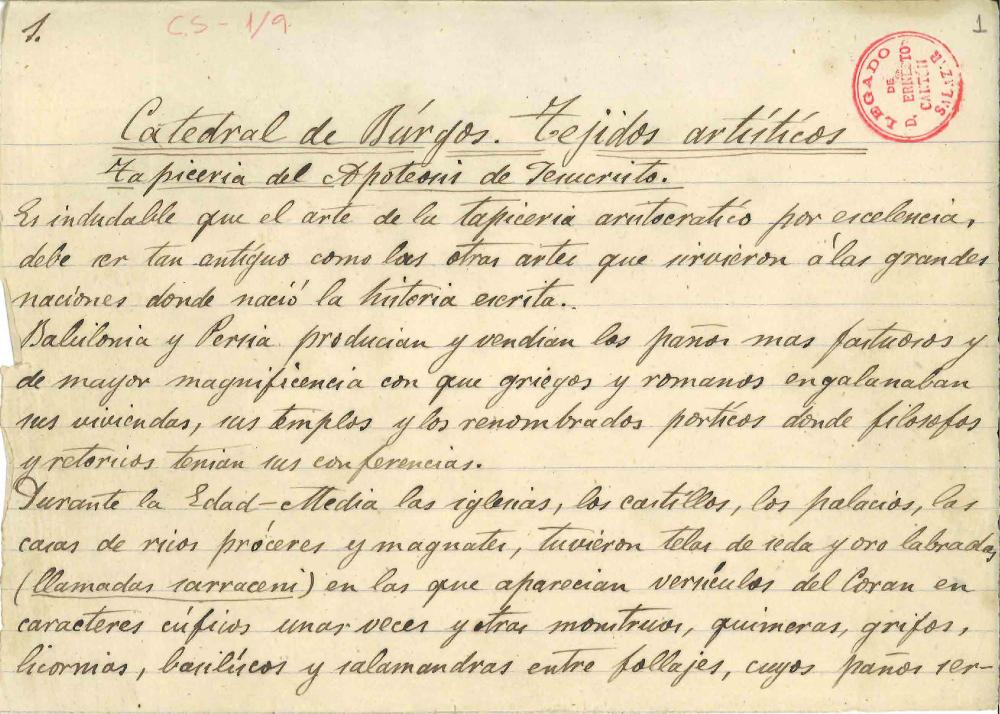 1.
CS-1/9.
1
LEGADO
DE
D. ERNESTO
CANTÓN
SALAZAR
Catedral de Búrgos. Tejidos artísticos
Tapiceria del Apoteosis de Jesucristo.
Es indudable que el arte de la tapiceria aristocratico por escelencia,
debe ser tan antíguo como las otras artes que sirvieron á las grandes
naciones donde nació la historia escrita.
Babilonia y Persia producian y vendian los paños mas fastuosos y
de mayor magnificencia con que griegos y romanos engalanaban
sus viviendas, sus templos y los renombrados pórticos donde filosofos
y retoricos tenian sus conferencias.
Durante la Edad-Media las iglesias, los castillos, los palacios, las
casas de ricos próceres y magnates, tuvieron telas de seda y oro labradas
(llamadas sarraceni) en las que aparecian versiculos del Coran en
caracteres cúficos unas veces y otras monstruos, quimeras, grifos,
licornios, basilíscos y salamandras entre follajes, cuyos paños ser-